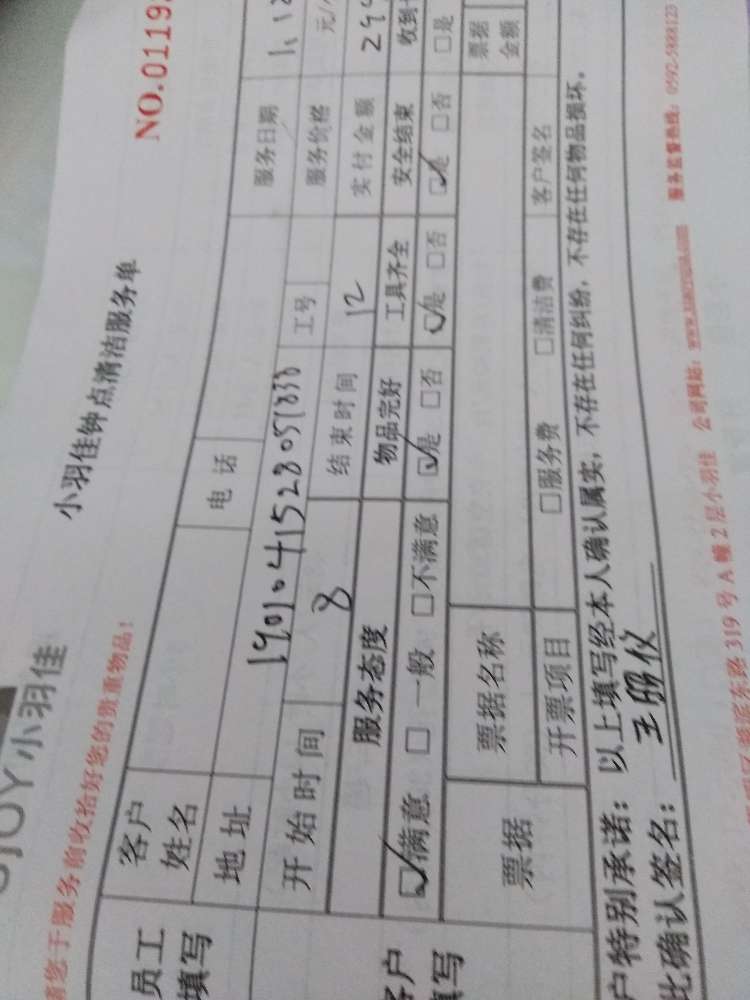 小羽佳
小羽佳钟点清洁服务单
NO.0119
您于服务前收拾好您的贵重物品！
员工
填写
客户
姓名
电话
服务日期
地址
190104152805
工号
服务价格
元/
开始时间
8
结束时间
12
实付金额
29
服务态度
物品完好
工具齐全
安全结束
收到
☑满意 □一般 □不满意
☑是 □否
☑是 □否
☑是 □否
□是
客户
填写
票据
票据名称
票据
金额
开票项目
□服务费 □清洁费
客户签名
户特别承诺：以上填写经本人确认属实，不存在任何纠纷，不存在任何物品损坏。
比确认签名：
东路 319 号 A 幢 2 层小羽佳 公司网站： 服务监督热线：0592-5888123